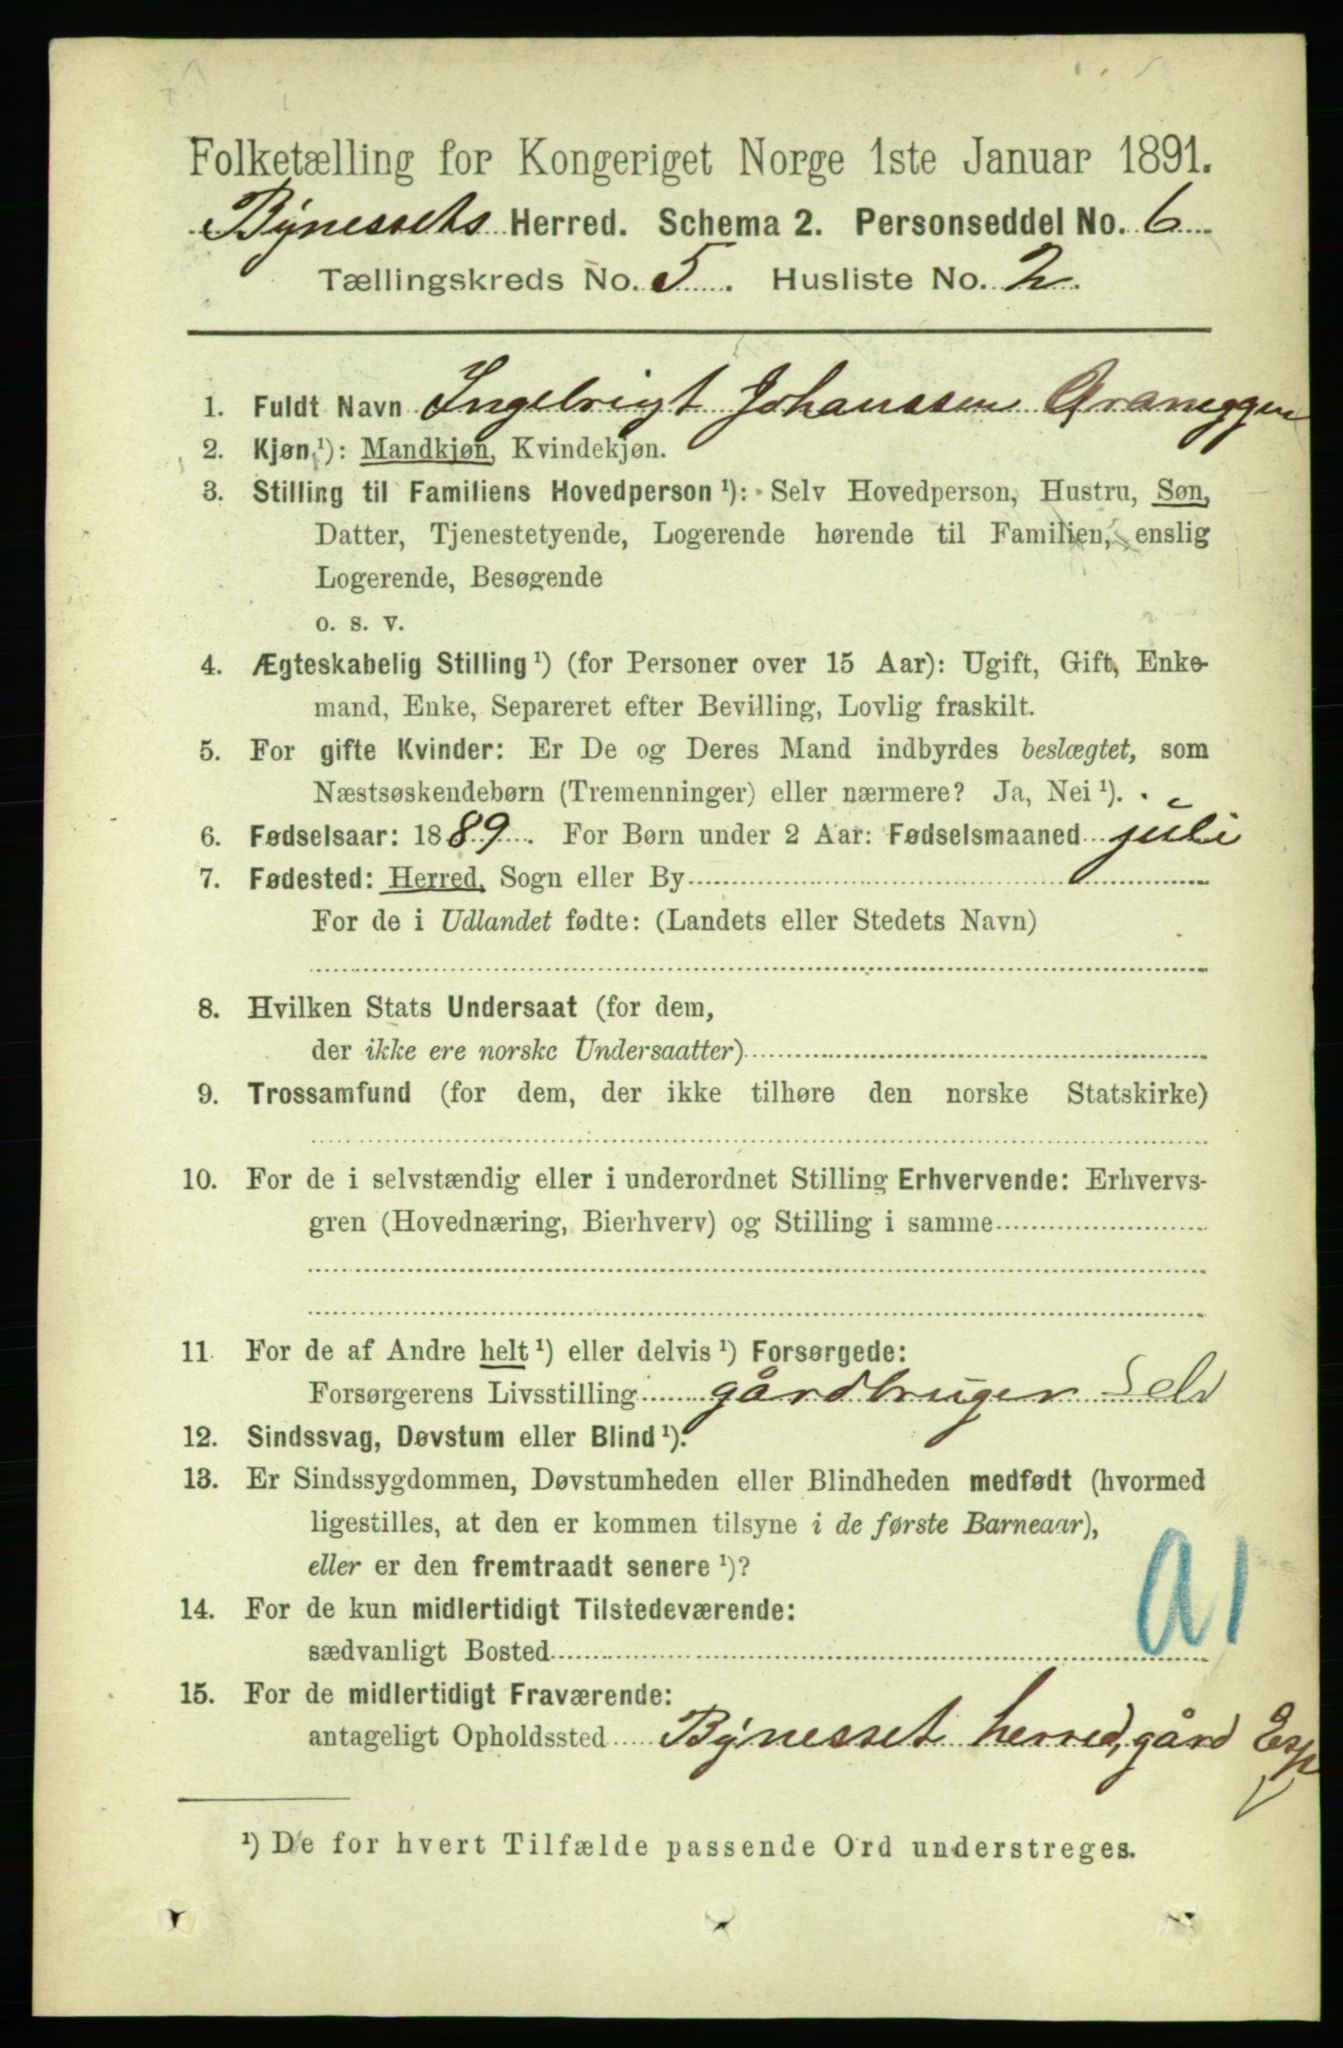 Folketælling for Kongeriget Norge 1ste Januar 1891.
Býnessets Herred. Schema 2. Personseddel No. 6
Tællingskreds No. 5. Husliste No. 2.
1. Fuldt Navn Ingebrigt Johanssen Graneggen
2. Kjøn ¹): Mandkjøn, Kvindekjøn.
3. Stilling til Familiens Hovedperson ¹): Selv Hovedperson, Hustru, Søn,
Datter, Tjenestetyende, Logerende hørende til Familien, enslig
Logerende, Besøgende
o. s. v.
4. Ægteskabelig Stilling ¹) (for Personer over 15 Aar): Ugift, Gift, Enke-
mand, Enke, Separeret efter Bevilling, Lovlig fraskilt.
5. For gifte Kvinder: Er De og Deres Mand indbyrdes beslægtet, som
Næstsøskendebørn (Tremenninger) eller nærmere? Ja, Nei ¹).
6. Fødselsaar: 1889. For Børn under 2 Aar: Fødselsmaaned juli
7. Fødested: Herred, Sogn eller By
For de i Udlandet fødte: (Landets eller Stedets Navn)
8. Hvilken Stats Undersaat (for dem,
der ikke ere norske Undersaatter)
9. Trossamfund (for dem, der ikke tilhøre den norske Statskirke)
10. For de i selvstændig eller i underordnet Stilling Erhvervende: Erhvervs-
gren (Hovednæring, Bierhverv) og Stilling i samme
11. For de af Andre helt ¹) eller delvis ¹) Forsørgede:
Forsørgerens Livsstilling gårdbruger Selv
12. Sindssvag, Døvstum eller Blind ¹).
13. Er Sindssygdommen, Døvstumheden eller Blindheden medfødt (hvormed
ligestilles, at den er kommen tilsyne i de første Barneaar),
eller er den fremtraadt senere ¹)?
a1
14. For de kun midlertidigt Tilstedeværende:
sædvanligt Bosted
15. For de midlertidigt Fraværende:
antageligt Opholdssted Býnesset herred, gård Esp
¹) De for hvert Tilfælde passende Ord understreges.